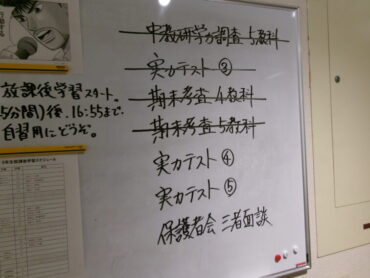 放課後学習スタート。
5分間)後、16:55まで
自習用にどうぞ。
中教研学力調査 5教科
実力テスト ③
期末考査 4教科
期末考査 5教科
実力テスト ④
実力テスト ⑤
保護者会 三者面談